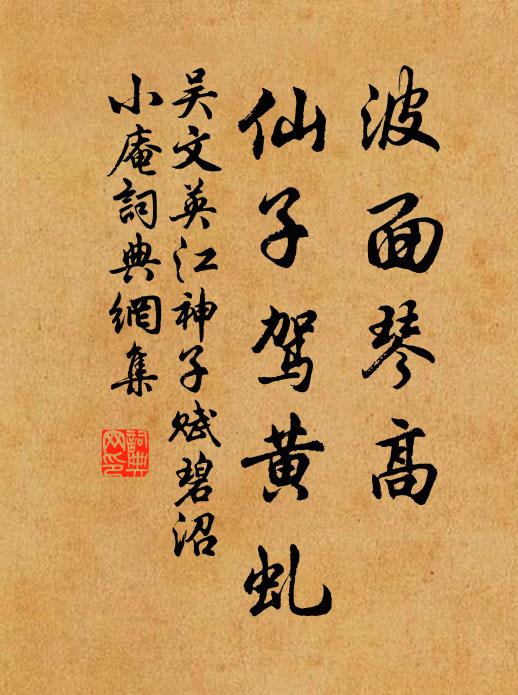 波面琴高
仙子驾黄虬
吴文英江神子赋碧沼
小庵詞典網集
詞典网印